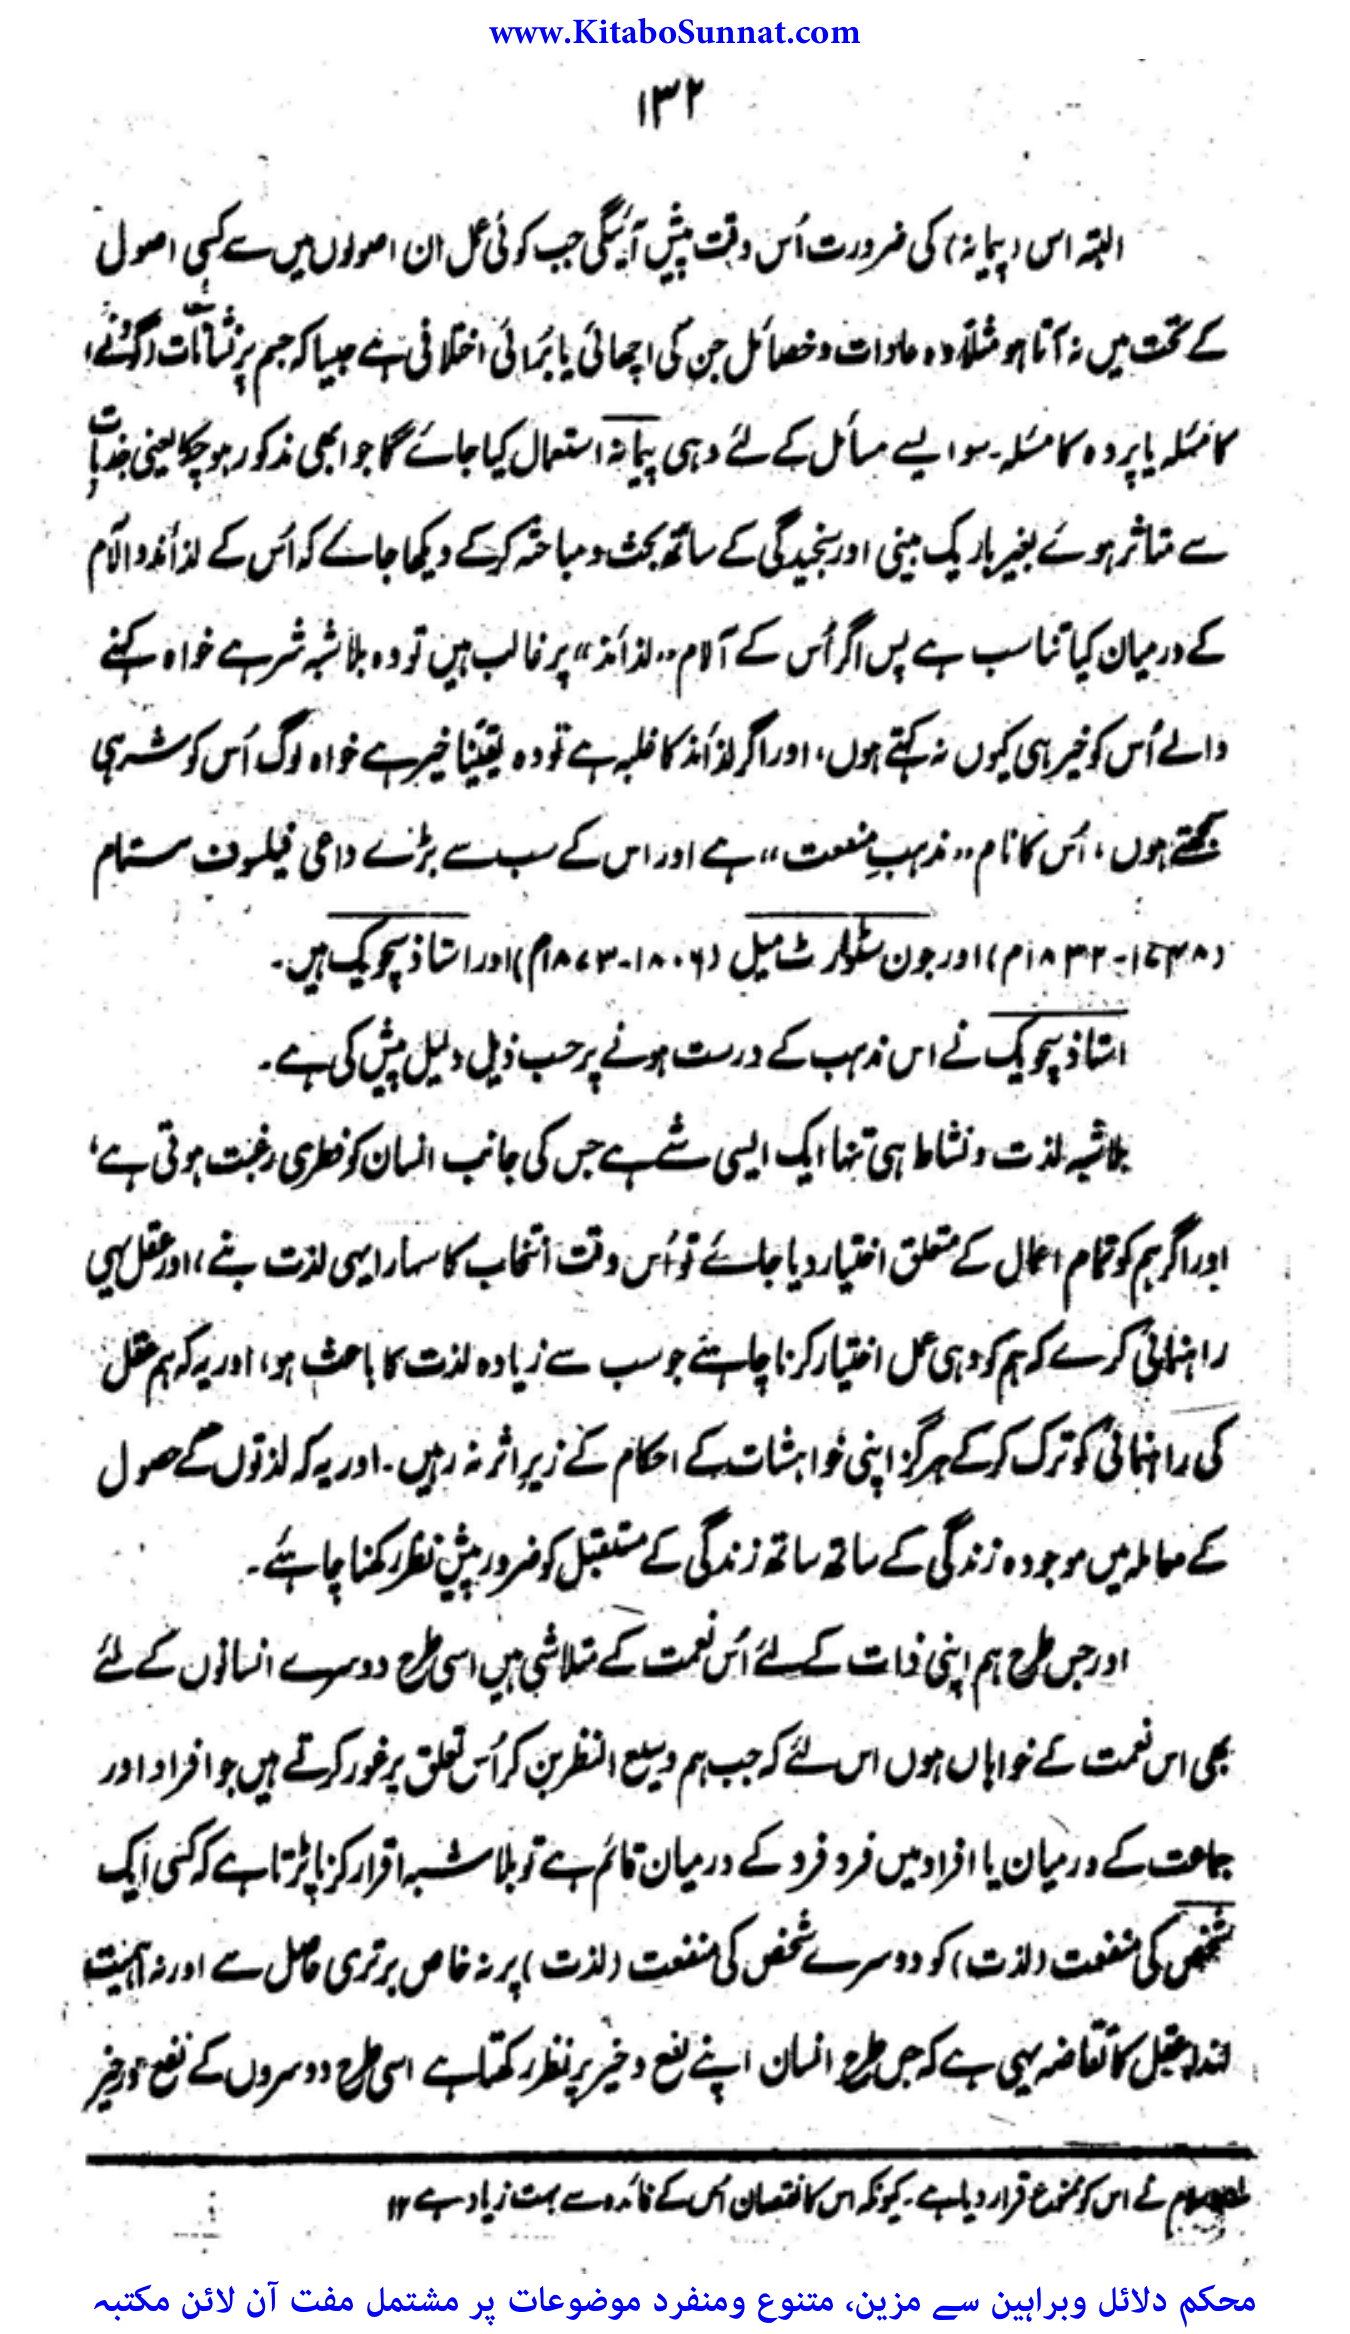 www.KitaboSunnat.com
۱۳۲
البتہ اس (پیمانہ) کی ضرورت اُس وقت پیش آئیگی جب کوئی عمل ان اصولوں میں سے کسی اصول
کے تحت میں نہ آتا ہو مثلاً وہ عادات و خصائل جن کی اچھائی یا بُرائی اختلافی ہے جیسا کہ جسم پر نشانات گدنے
کا مسئلہ یا پردہ کا مسئلہ۔ سو ایسے مسائل کے لئے وہی پیمانہ استعمال کیا جائے گا جو ابھی مذکور ہو چکا یعنی جذبات
سے متاثر ہوئے بغیر باریک بینی اور سنجیدگی کے ساتھ بحث و مباحثہ کرکے دیکھا جائے کہ اُس کے لذائذ و آلام
کے درمیان کیا تناسب ہے پس اگر اُس کے آلام ،،لذائذ،، پر غالب ہیں تو وہ بلاشبہ شر ہے خواہ کہنے
والے اُس کو خیر ہی کیوں نہ کہتے ہوں، اور اگر لذائذ کا غلبہ ہے تو وہ یقیناً خیر ہے خواہ لوگ اُس کو شر ہی
سمجھتے ہوں، اُس کا نام ،،مذہبِ منفعت،، ہے اور اس کے سب سے بڑے داعی فیلسوف
(۱۷۴۸-۱۸۳۲م) اور جون سٹوارٹ میل (۱۸۰۶-۱۸۷۳م) اور استاذ سچویک ہیں۔
استاذ سچویک نے اس مذہب کے درست ہونے پر حسب ذیل دلیل پیش کی ہے۔
بلاشبہ لذت و نشاط ہی تنہا ایک ایسی شے ہے جس کی جانب انسان کو فطری رغبت ہوتی ہے،
اور اگر ہم کو تمام اعمال کے متعلق اختیار دیا جائے تو اُس وقت انتخاب کا سہارا یہی لذت بنے، اور عقل یہی
راہنمائی کرے کہ ہم کو وہی عمل اختیار کرنا چاہئے جو سب سے زیادہ لذت کا باعث ہو، اور یہ کہ ہم عقل
کی راہنمائی کو ترک کرکے ہرگز اپنی خواہشات کے احکام کے زیر اثر نہ رہیں۔ اور یہ کہ لذتوں کے حصول
کے معاملہ میں موجودہ زندگی کے ساتھ ساتھ زندگی کے مستقبل کو ضرور پیش نظر رکھنا چاہئے۔
اور جس طرح ہم اپنی ذات کے لئے اُس نعمت کے متلاشی ہیں اسی طرح دوسرے انسانوں کے لئے
بھی اس نعمت کے خواہاں ہوں اس لئے کہ جب ہم وسیع النظر بن کر اُس تعلق پر غور کرتے ہیں جو افراد اور
جماعت کے درمیان یا افراد میں فرد فرد کے درمیان قائم ہے تو بلاشبہ اقرار کرنا پڑتا ہے کہ کسی ایک
شخص کی منفعت (لذت) کو دوسرے شخص کی منفعت (لذت) پر نہ خاص برتری حاصل ہے اور نہ اہمیت
لہٰذا عقل کا تقاضہ یہی ہے کہ جس طرح انسان اپنے نفع و خیر پر نظر رکھتا ہے اسی طرح دوسروں کے نفع و خیر
نے اس کو ممنوع قرار دیا ہے۔ کیونکہ اس کا نقصان اُس کے فائدہ سے بہت زیادہ ہے ۱۲
محکم دلائل وبراہین سے مزین، متنوع ومنفرد موضوعات پر مشتمل مفت آن لائن مکتبہ